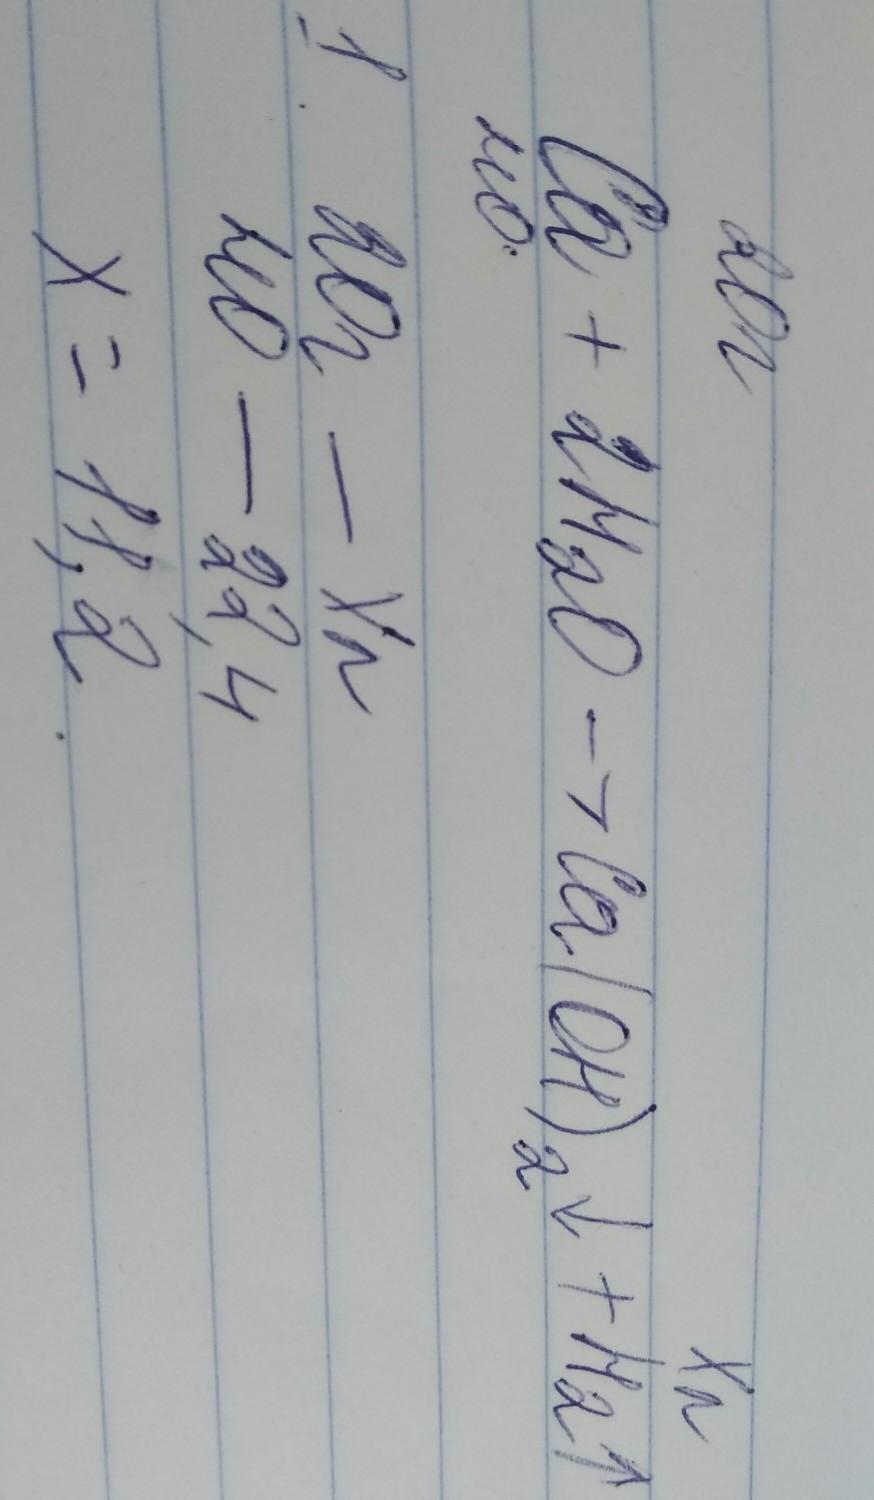 20г Xл
Ca + 2H₂O → Ca(OH)₂↓ + H₂↑
40.
1. 20г — Xл
40 — 22,4
X = 11,2.